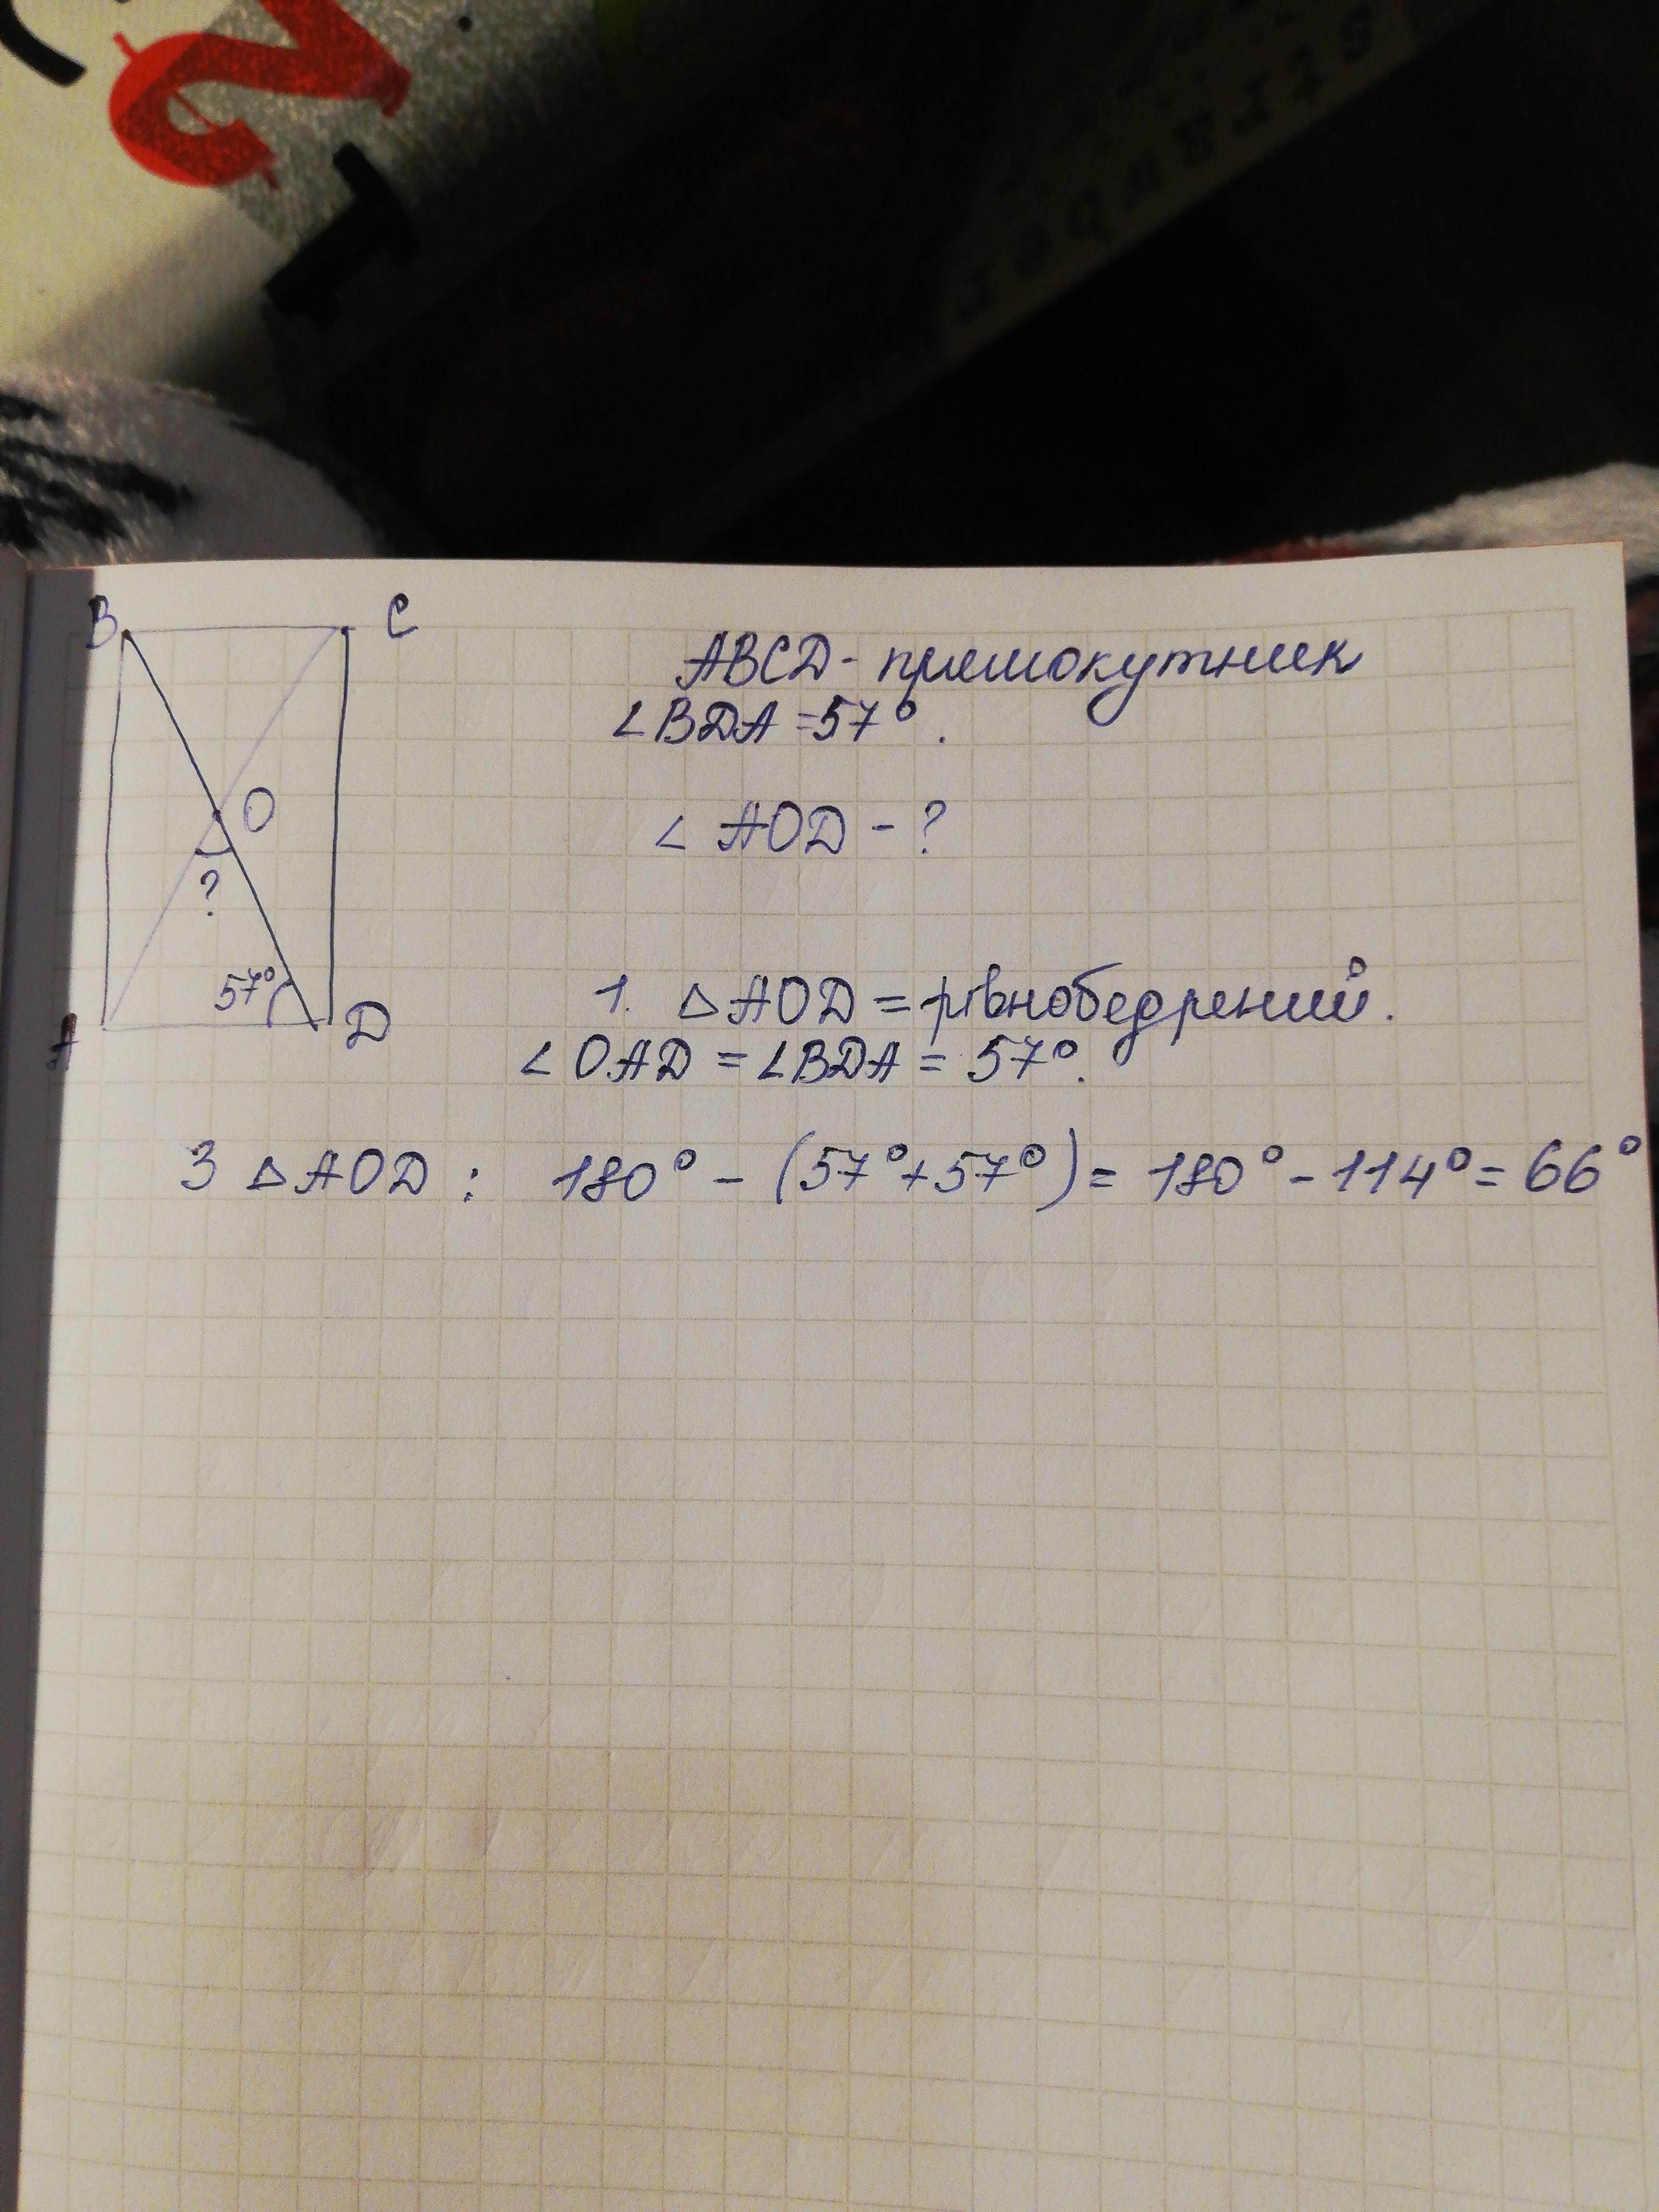 B C
ABCD - прямокутник
∠BDA = 57°.
O
∠ AOD - ?
?
57°
A D
1. △AOD = рівнобедрений.
∠OAD = ∠BDA = 57°.
З △AOD : 180° - (57° + 57°) = 180° - 114° = 66°